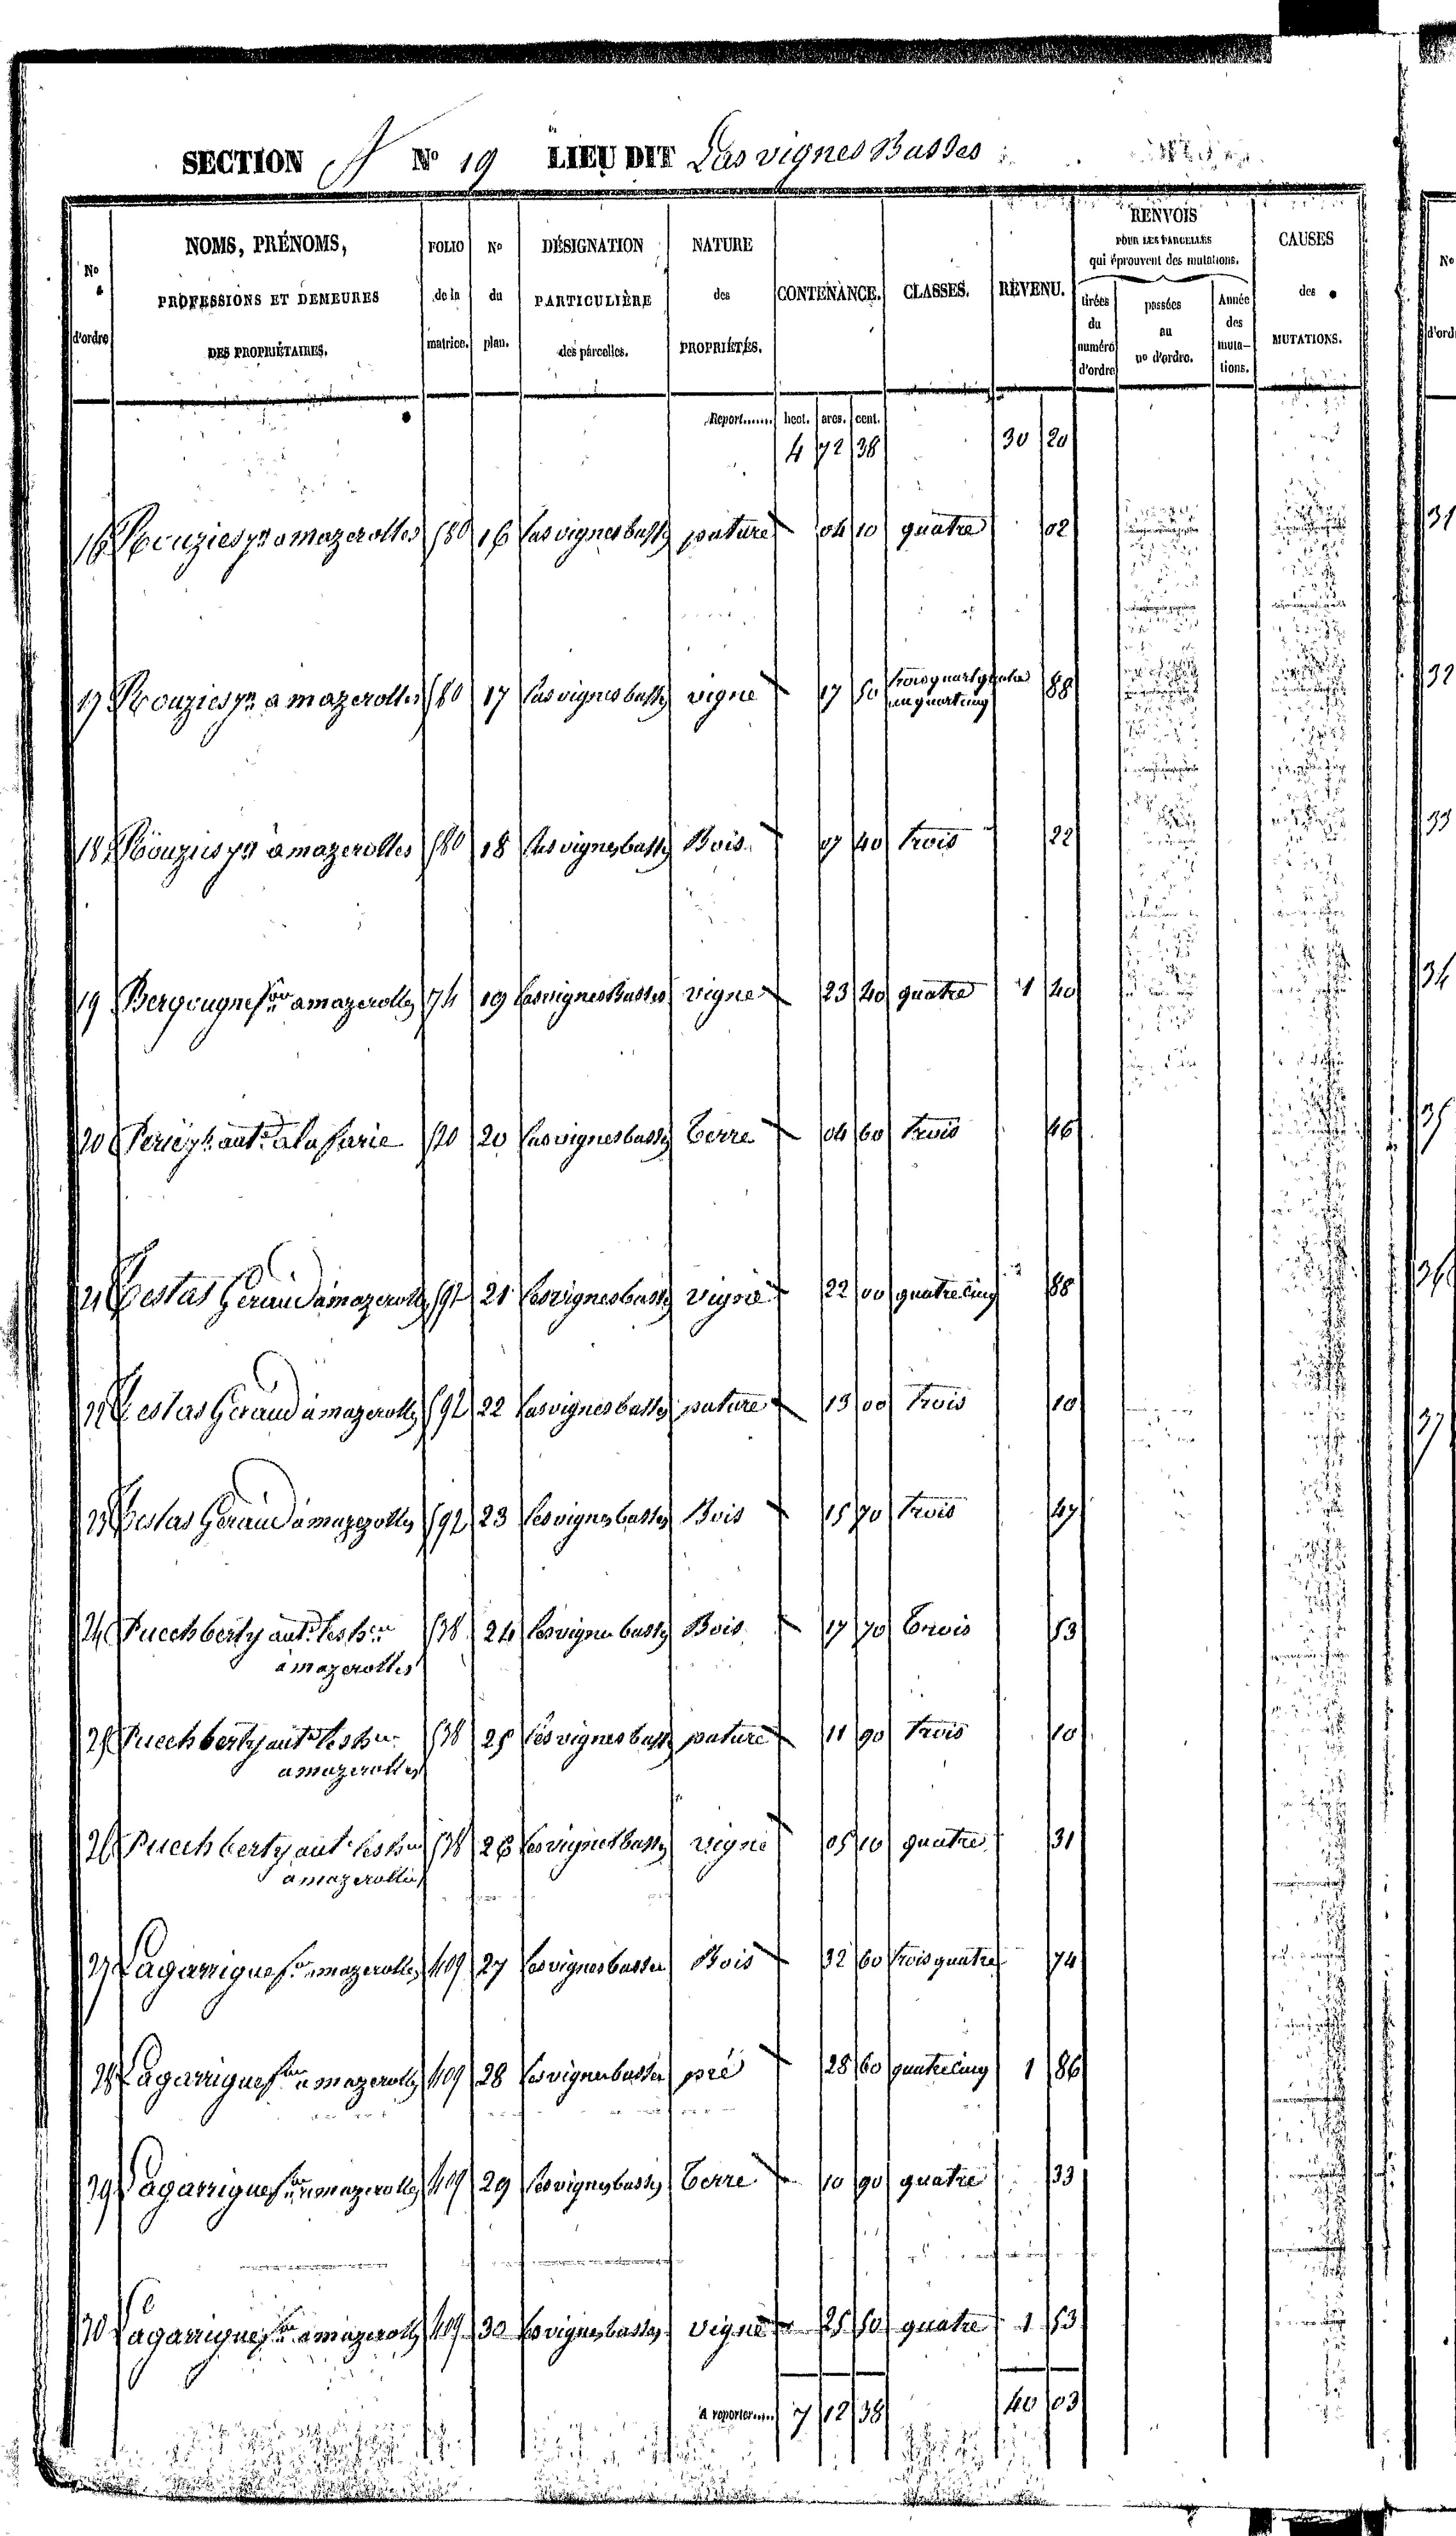 SECTION A N° 19 LIEU DIT Las vignes Basses
N° d'ordre
NOMS, PRÉNOMS, PROFESSIONS ET DEMEURES DES PROPRIÉTAIRES.
FOLIO de la matrice.
N° du plan.
DÉSIGNATION PARTICULIÈRE des parcelles.
NATURE des PROPRIÉTÉS.
CONTENANCE.
CLASSES.
REVENU.
RENVOIS POUR LES PARCELLES qui éprouvent des mutations.
tirées du numéro d'ordre
passées au no d'ordre.
Année des muta-tions.
CAUSES des MUTATIONS.
Report....... hect. ares. cent.
4 72 38 30 20
16 Rouzies à mazerolles 580 16 las vignes basses pature 04 10 quatre 02
17 Rouzies à mazerolles 580 17 las vignes basses vigne 17 50 trois quart quatre un quart cinq 88
18 Rouzies à mazerolles 580 18 las vignes basses Bois 07 40 trois 22
19 Bergougne à mazerolles 74 19 las vignes Basses vigne 23 40 quatre 1 40
20 ant.e à la farie 520 20 las vignes basses Terre 04 60 trois 46
21 Testas Géraud à mazerolles 592 21 las vignes basses vigne 22 00 quatre cinq 88
22 Testas Géraud à mazerolles 592 22 las vignes basses pature 13 00 trois 10
23 Testas Géraud à mazerolles 592 23 las vignes basses Bois 15 70 trois 47
24 Puechberty ant.e les h.ers 538 24 las vignes basses Bois 17 70 Trois 53
à mazerolles
25 Puechberty ant.e les h.ers 538 25 las vignes basses pature 11 90 trois 10
à mazerolles
26 Puechberty ant.e les h.ers 538 26 las vignes basses vigne 05 10 quatre 31
à mazerolles
27 Lagarrigue à mazerolles 409 27 las vignes basses Bois 32 60 trois quatre 74
28 Lagarrigue à mazerolles 409 28 las vignes basses pré 28 60 quatre cinq 1 86
29 Lagarrigue à mazerolles 409 29 las vignes basses Terre 10 90 quatre 33
30 Lagarrigue à mazerolles 409 30 las vignes basses vigne 25 50 quatre 1 53
A reporter..... 7 12 38 40 03
N° d'ord
31
32
33
34
35
36
37